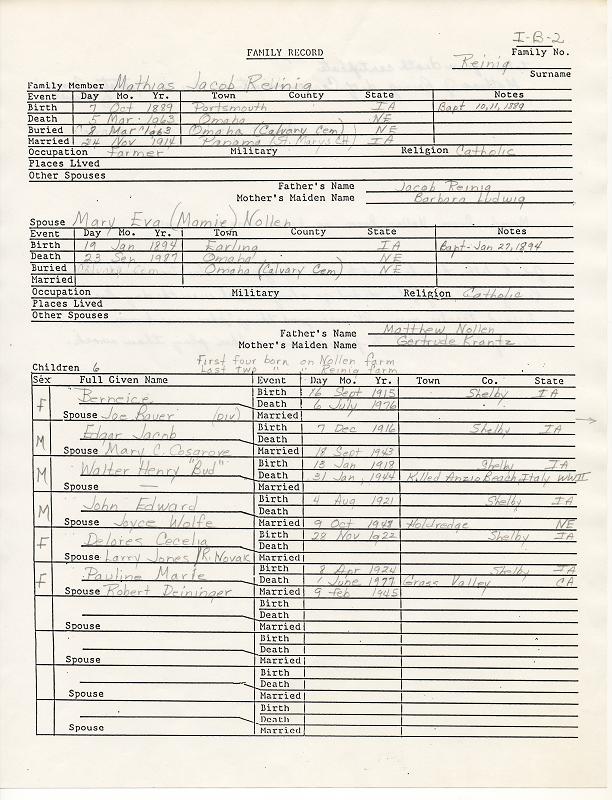 I-B-2
FAMILY RECORD Family No.
Reinig
Surname
Family Member Mathias Jacob Reinig
Event Day Mo. Yr. Town County State Notes
Birth 7 Oct 1889 Portsmouth IA Bapt 10,11,1889
Death 5 Mar 1963 Omaha NE
Buried 8 Mar 1963 Omaha (Calvary Cem) NE
Married 24 Nov 1914 Panama (St. Marys Ch) IA
Occupation farmer Military Religion Catholic
Places Lived
Other Spouses
Father's Name Jacob Reinig
Mother's Maiden Name Barbara Ludwig
Spouse Mary Eva (Mamie) Nollen
Event Day Mo. Yr. Town County State Notes
Birth 19 Jan 1894 Earling IA Bapt-Jan 27, 1894
Death 23 Sep 1987 Omaha NE
Buried Calvary Cem Omaha (Calvary Cem) NE
Married
Occupation Military Religion Catholic
Places Lived
Other Spouses
Father's Name Matthew Nollen
Mother's Maiden Name Gertrude Krantz
First four born on Nollen farm
Children 6 Last two " " Reinig farm
Sex Full Given Name Event Day Mo. Yr. Town Co. State
F Berneice Birth 16 Sept 1915 Shelby IA
Death 6 July 1976
Spouse Joe Bauer (DIV) Married
M Edgar Jacob Birth 7 Dec 1916 Shelby IA
Death
Spouse Mary C. Cosgrove Married 18 Sept 1943
M Walter Henry "Bud" Birth 13 Jan 1918 Shelby IA
Death 31 Jan, 1944 Killed Anzio Beach, Italy WWII
Spouse — Married
M John Edward Birth 4 Aug 1921 Shelby IA
Death
Spouse Joyce Wolfe Married 9 Oct 1948 Holdredge NE
F Delores Cecelia Birth 28 Nov 1922 Shelby IA
Death
Spouse Larry Jones / R. Novak Married
F Pauline Marie Birth 8 Apr 1924 Shelby IA
Death 1 June 1977 Grass Valley CA
Spouse Robert Deininger Married 9 feb 1945
Birth
Death
Spouse Married
Birth
Death
Spouse Married
Birth
Death
Spouse Married
Birth
Death
Spouse Married